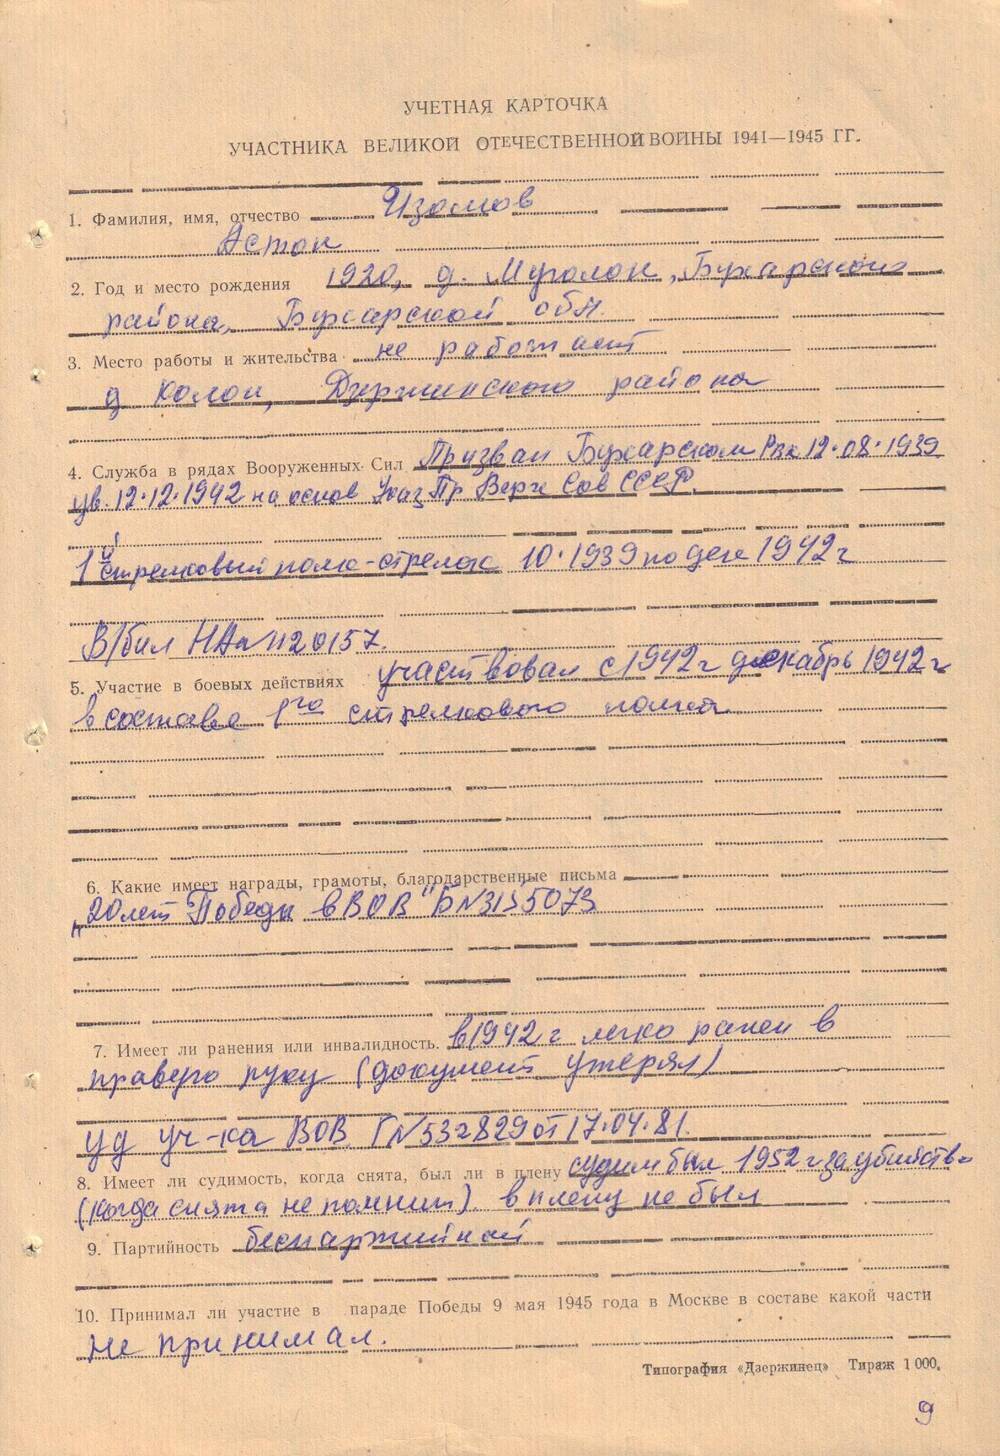 УЧЕТНАЯ КАРТОЧКА
УЧАСТНИКА ВЕЛИКОЙ ОТЕЧЕСТВЕННОЙ ВОЙНЫ 1941—1945 ГГ.
1. Фамилия, имя, отчество Изомов
Астон
2. Год и место рождения 1920, д. Муголон, Бухарского
района, Бухарской обл.
3. Место работы и жительства не работает
д Калон, Дзержинского района
4. Служба в рядах Вооруженных Сил Призван Бухарском Рвк 12.08.1939
ув. 12.12.1942 на основ Указ Пр Верх Сов СССР.
1й стрелковый полк-стрелок 10.1939 по дек 1942 г
В/бил НА №1120157.
5. Участие в боевых действиях участвовал с 1942 г декабрь 1942 г
в составе 1го стрелкового полка
6. Какие имеет награды, грамоты, благодарственные письма
„20 лет Победы в ВОВ" Б №3155073
7. Имеет ли ранения или инвалидность. в 1942 г легко ранен в
правую руку (документ утерял)
уд уч-ка ВОВ Г №532829 от 17.04.81.
8. Имеет ли судимость, когда снята, был ли в плену судим был 1952 г за убийств-
(когда снята не помнит) в плену не был
9. Партийность беспартийный
10. Принимал ли участие в параде Победы 9 мая 1945 года в Москве в составе какой части
не принимал.
Типография «Дзержинец» Тираж 1 000.
9